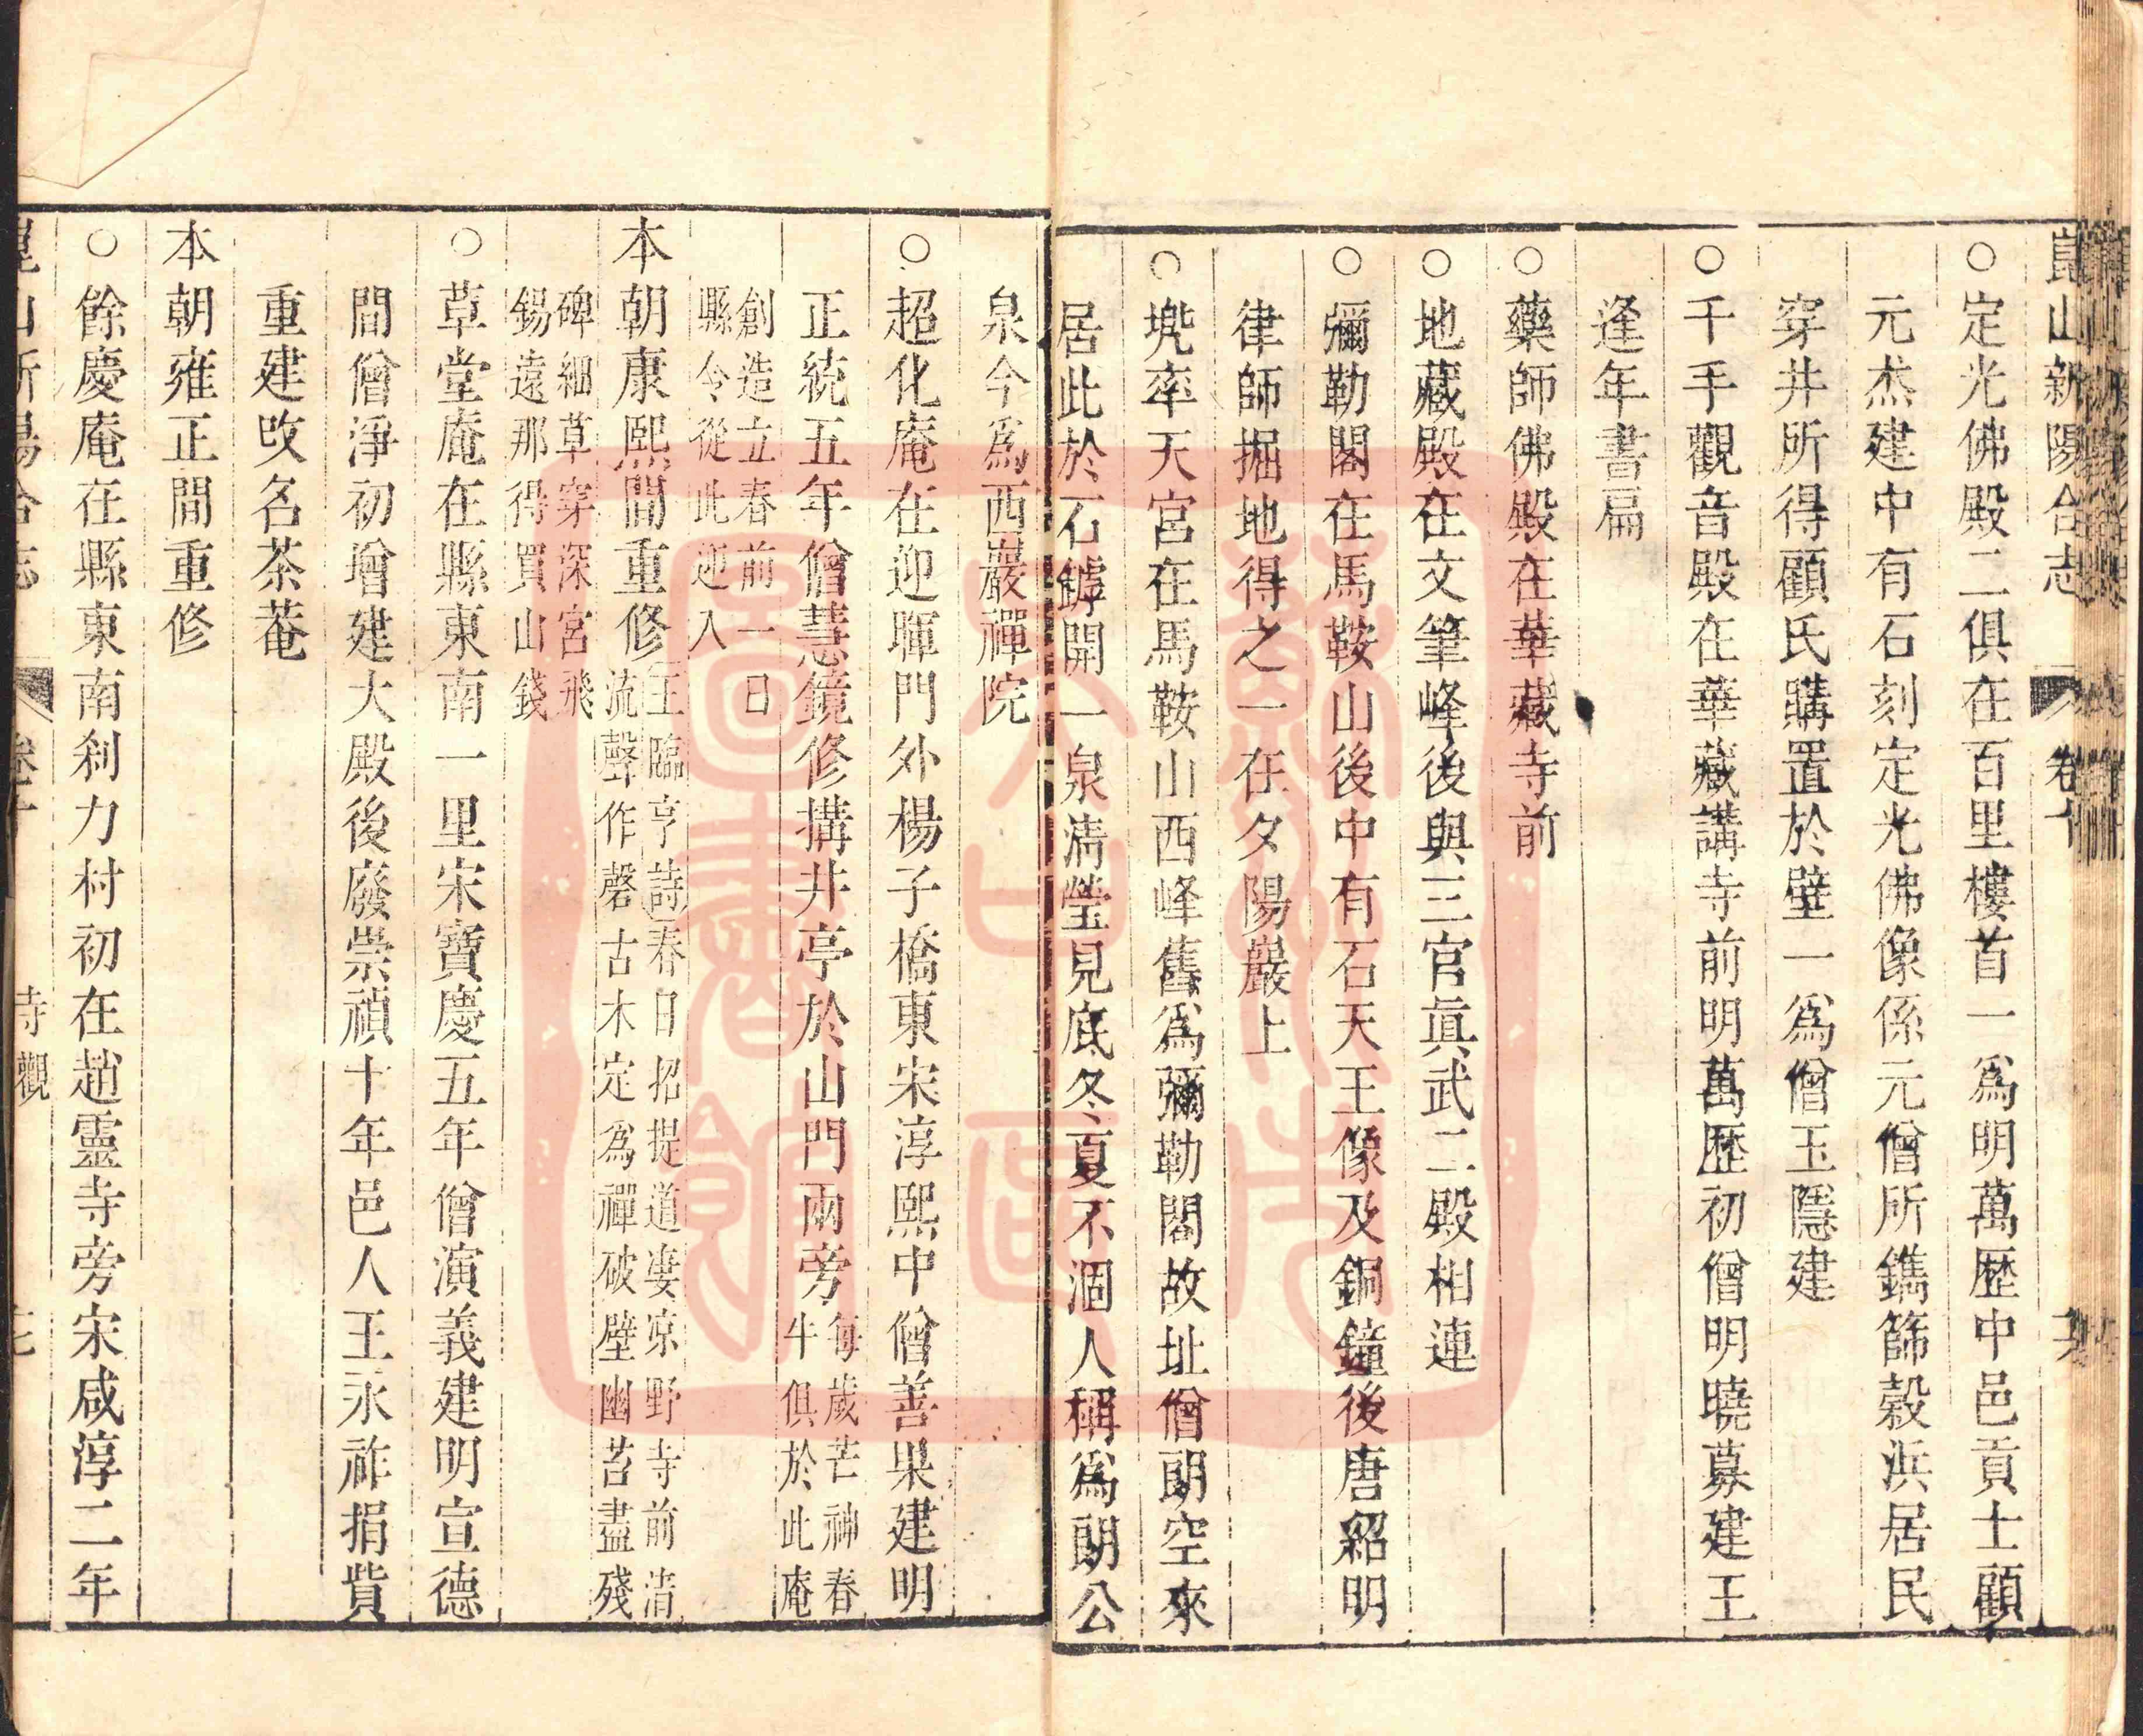 崑山新陽合志 卷十
○定光佛殿二俱在百里樓首一爲明萬歷中邑貢士顧
元杰建中有石刻定光佛像係元僧所鐫篩穀浜居民
穿井所得顧氏購置於壁一爲僧玉隱建
○千手觀音殿在華藏講寺前明萬歷初僧明曉募建王
逢年書扁
○藥師佛殿在華藏寺前
○地藏殿在文筆峰後與三官眞武二殿相連
○彌勒閣在馬鞍山後中有石天王像及銅鐘後唐紹明
律師掘地得之一在夕陽巖上
○兠率天宮在馬鞍山西峰舊爲彌勒閣故址僧朗空來
居此於石罅開一泉淸瑩見底冬夏不涸人稱爲朗公
泉今爲西巖禪院
○超化庵在迎暉門外楊子橋東宋淳熙中僧善果建明
正統五年僧慧鏡修搆井亭於山門兩旁每歲芒神春
牛俱於此庵
創造立春前一日
縣令從此迎入
本朝康熙間重修王臨亨詩春日招提道淒凉野寺前淸
流聲作磬古木定爲禪破壁幽苔盡殘
碑細草穿深宮飛
錫遠那得買山錢
○草堂庵在縣東南一里宋寶慶五年僧演義建明宣德
間僧淨初增建大殿後廢崇禎十年邑人王永祚捐貲
重建改名茶菴
本朝雍正間重修
○餘慶庵在縣東南刹力村初在趙靈寺旁宋咸淳二年
崑山新陽合志 卷十 寺觀
蘇州大巴圖書館